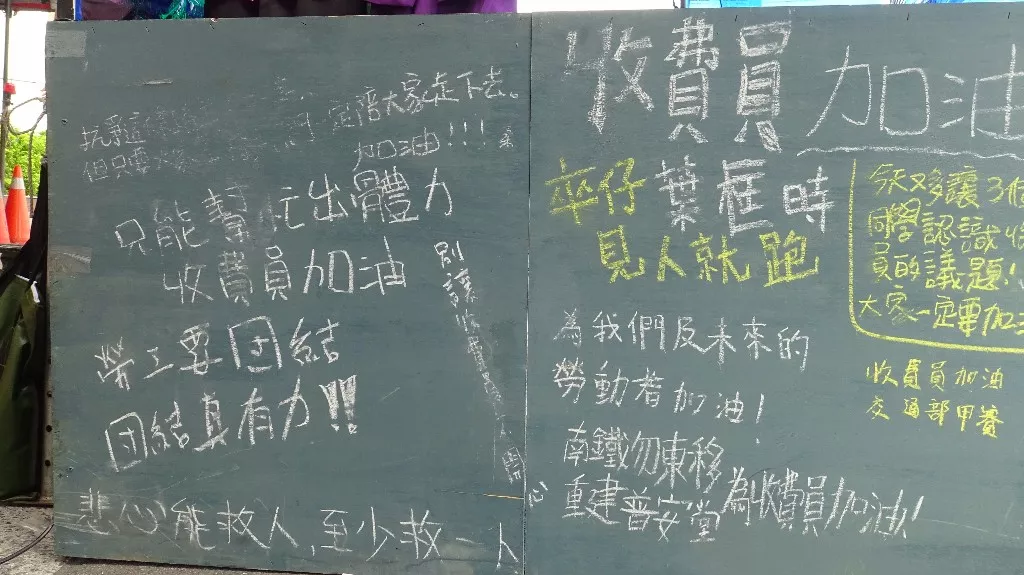 一定陪大家走下去。
但只要
加油!!!
只能幫忙出體力
收費員加油
別讓收費員
勞工要团結
团結真有力!!
悲心能救人,至少救一人
收費員加油
卒仔葉匡時
見人就跑
為我們及未來的
勞動者加油!
南鐵勿東移
重建普安堂
為收費員加油!
今天又多讓3個
同學認識收
員的議題!
大家一定要加油
收費員加油
交通部甲賽